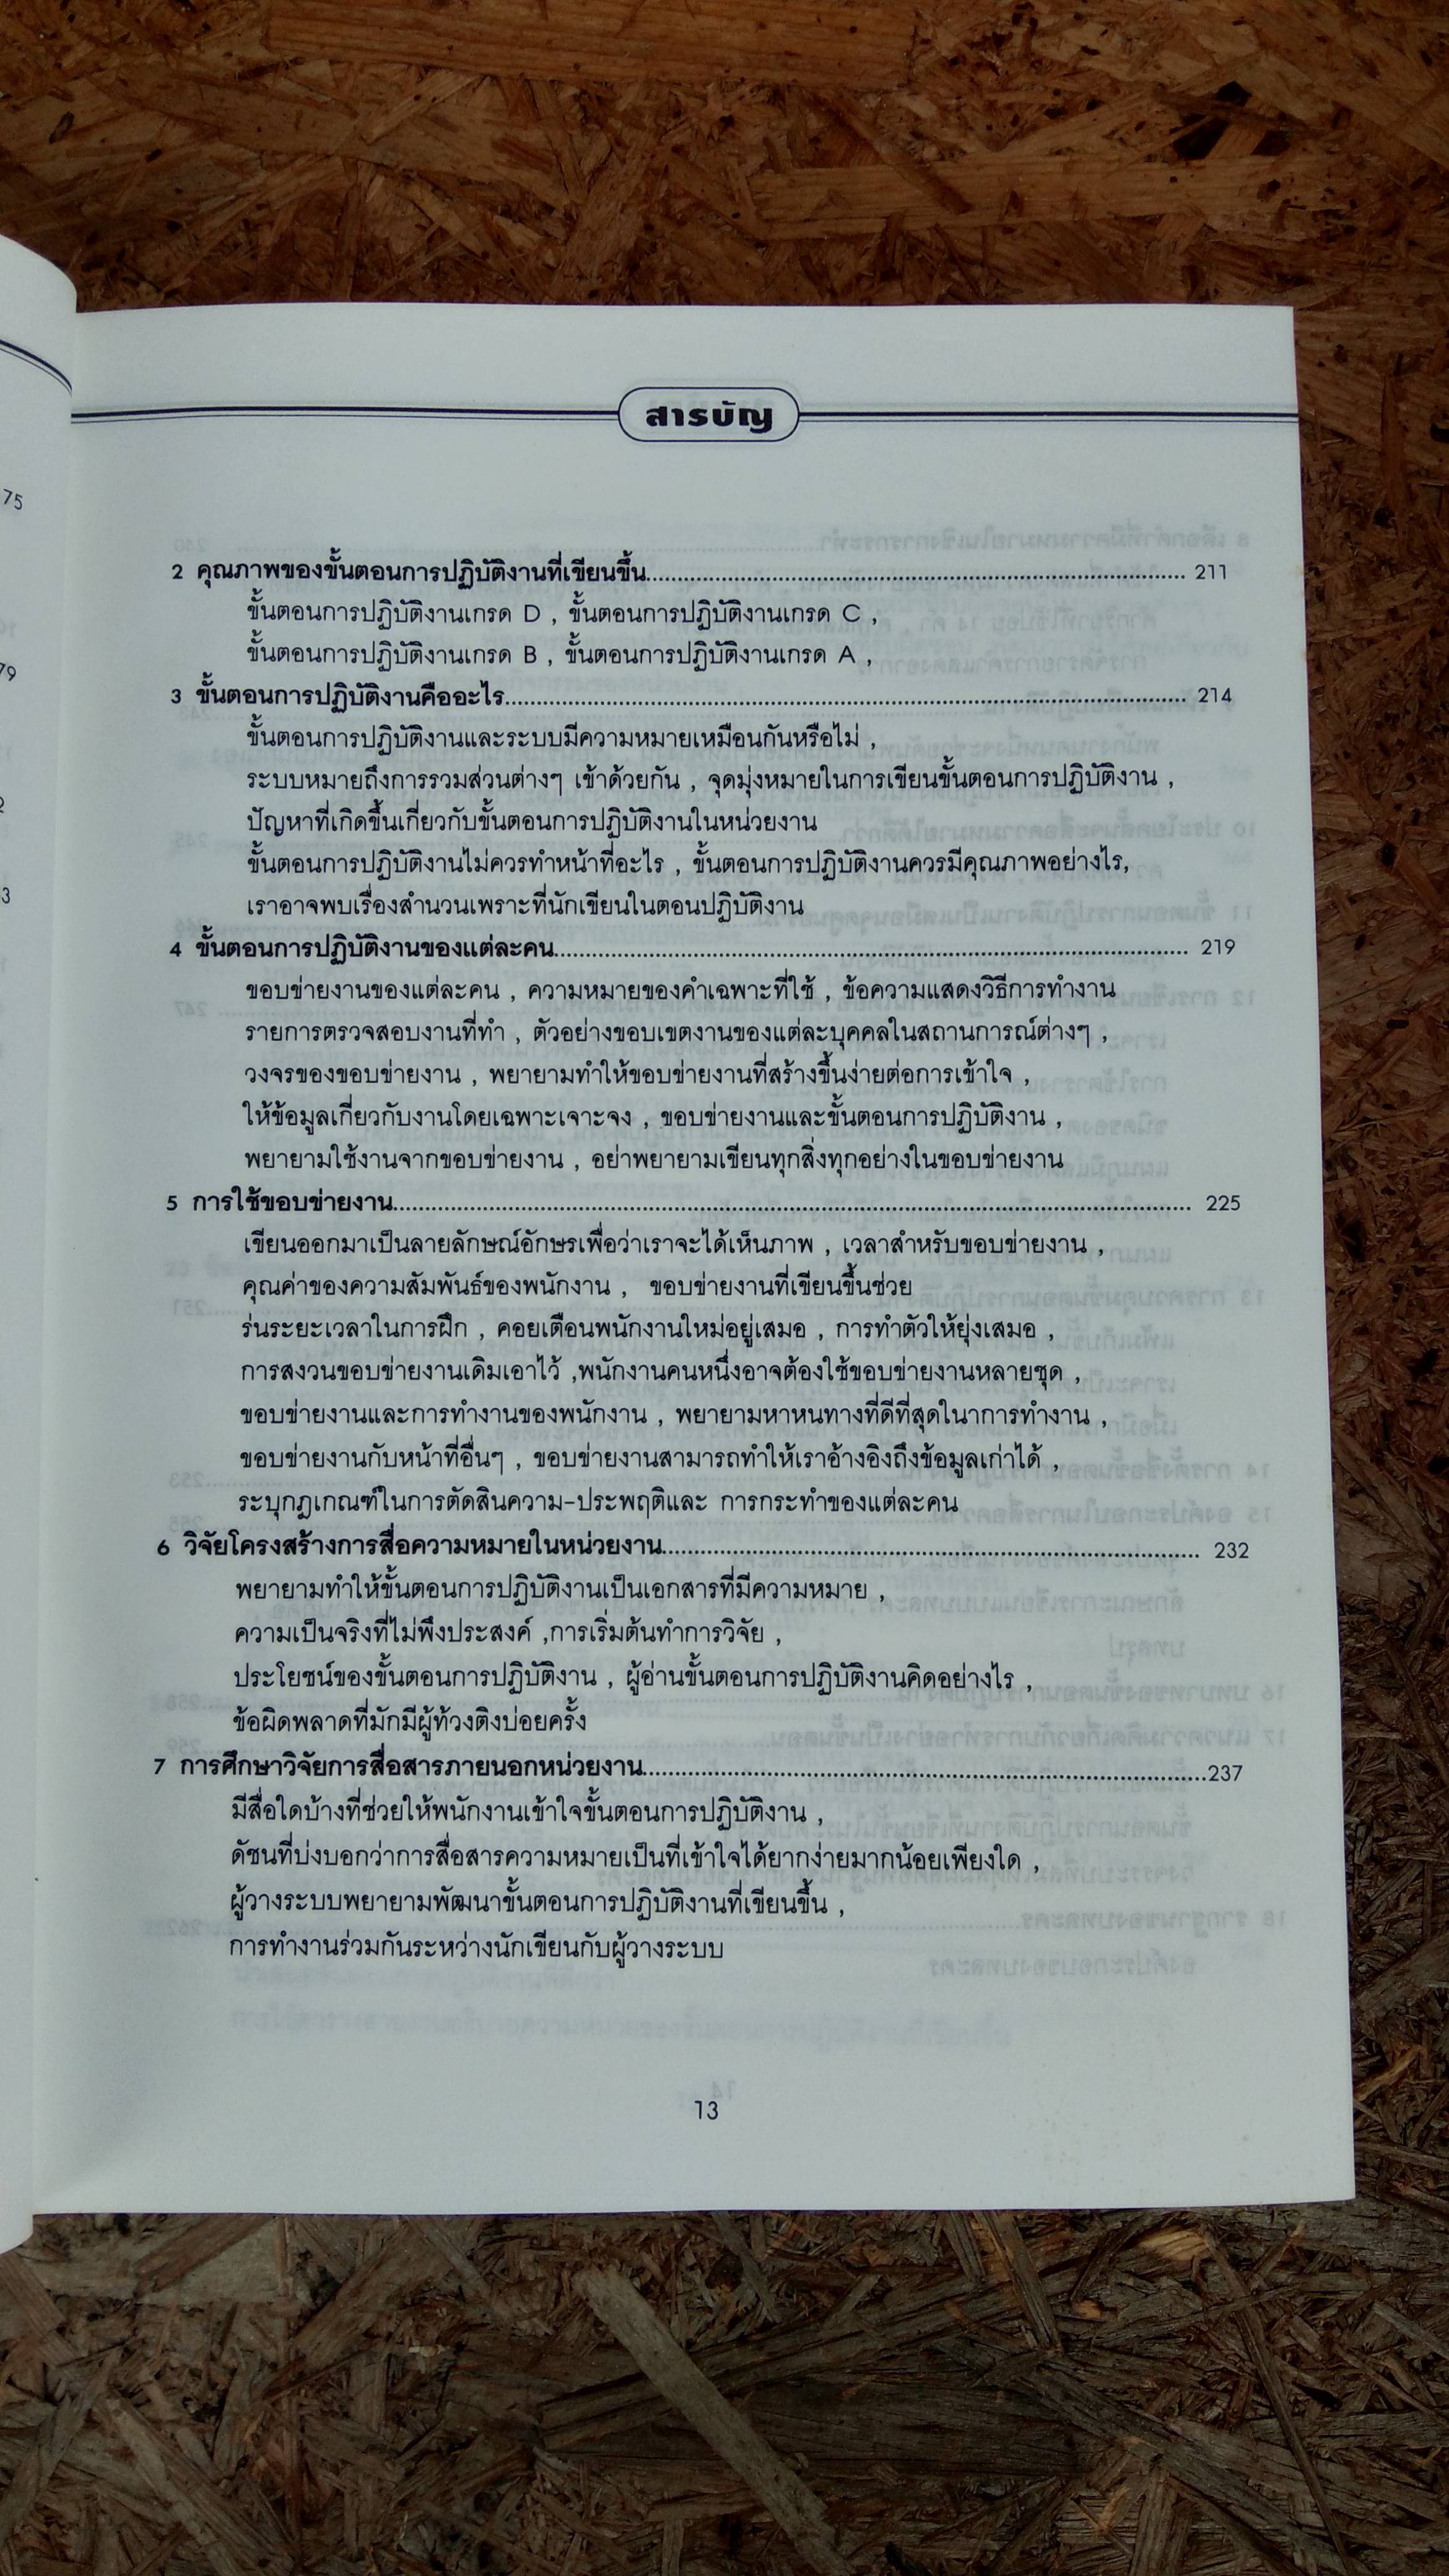 สารบัญ
2 คุณภาพของขั้นตอนการปฏิบัติงานที่เขียนขึ้น................................ 211
ขั้นตอนการปฏิบัติงานเกรด D , ขั้นตอนการปฏิบัติงานเกรด C ,
ขั้นตอนการปฏิบัติงานเกรด B , ขั้นตอนการปฏิบัติงานเกรด A ,
3 ขั้นตอนการปฏิบัติงานคืออะไร................................ 214
ขั้นตอนการปฏิบัติงานและระบบมีความหมายเหมือนกันหรือไม่ ,
ระบบหมายถึงการรวมส่วนต่างๆ เข้าด้วยกัน , จุดมุ่งหมายในการเขียนขั้นตอนการปฏิบัติงาน ,
ปัญหาที่เกิดขึ้นเกี่ยวกับขั้นตอนการปฏิบัติงานในหน่วยงาน
ขั้นตอนการปฏิบัติงานไม่ควรทำหน้าที่อะไร , ขั้นตอนการปฏิบัติงานควรมีคุณภาพอย่างไร,
เราอาจพบเรื่องสำนวนเพราะที่นักเขียนในตอนปฏิบัติงาน
4 ขั้นตอนการปฏิบัติงานของแต่ละคน................................ 219
ขอบข่ายงานของแต่ละคน , ความหมายของคำเฉพาะที่ใช้ , ข้อความแสดงวิธีการทำงาน
รายการตรวจสอบงานที่ทำ , ตัวอย่างขอบเขตงานของแต่ละบุคคลในสถานการณ์ต่างๆ ,
วงจรของขอบข่ายงาน , พยายามทำให้ขอบข่ายงานที่สร้างขึ้นง่ายต่อการเข้าใจ ,
ให้ข้อมูลเกี่ยวกับงานโดยเฉพาะเจาะจง , ขอบข่ายงานและขั้นตอนการปฏิบัติงาน ,
พยายามใช้งานจากขอบข่ายงาน , อย่าพยายามเขียนทุกสิ่งทุกอย่างในขอบข่ายงาน
5 การใช้ขอบข่ายงาน................................ 225
เขียนออกมาเป็นลายลักษณ์อักษรเพื่อว่าเราจะได้เห็นภาพ , เวลาสำหรับขอบข่ายงาน ,
คุณค่าของความสัมพันธ์ของพนักงาน , ขอบข่ายงานที่เขียนขึ้นช่วย
ร่นระยะเวลาในการฝึก , คอยเตือนพนักงานใหม่อยู่เสมอ , การทำตัวให้ยุ่งเสมอ ,
การสงวนขอบข่ายงานเดิมเอาไว้ ,พนักงานคนหนึ่งอาจต้องใช้ขอบข่ายงานหลายชุด ,
ขอบข่ายงานและการทำงานของพนักงาน , พยายามหาหนทางที่ดีที่สุดในาการทำงาน ,
ขอบข่ายงานกับหน้าที่อื่นๆ , ขอบข่ายงานสามารถทำให้เราอ้างอิงถึงข้อมูลเก่าได้ ,
ระบุกฎเกณฑ์ในการตัดสินความ-ประพฤติและ การกระทำของแต่ละคน
6 วิจัยโครงสร้างการสื่อความหมายในหน่วยงาน................................ 232
พยายามทำให้ขั้นตอนการปฏิบัติงานเป็นเอกสารที่มีความหมาย ,
ความเป็นจริงที่ไม่พึงประสงค์ ,การเริ่มต้นทำการวิจัย ,
ประโยชน์ของขั้นตอนการปฏิบัติงาน , ผู้อ่านขั้นตอนการปฏิบัติงานคิดอย่างไร ,
ข้อผิดพลาดที่มักมีผู้ท้วงติงบ่อยครั้ง
7 การศึกษาวิจัยการสื่อสารภายนอกหน่วยงาน................................237
มีสื่อใดบ้างที่ช่วยให้พนักงานเข้าใจขั้นตอนการปฏิบัติงาน ,
ดัชนที่บ่งบอกว่าการสื่อสารความหมายเป็นที่เข้าใจได้ยากง่ายมากน้อยเพียงใด ,
ผู้วางระบบพยายามพัฒนาขั้นตอนการปฏิบัติงานที่เขียนขึ้น ,
การทำงานร่วมกันระหว่างนักเขียนกับผู้วางระบบ
13